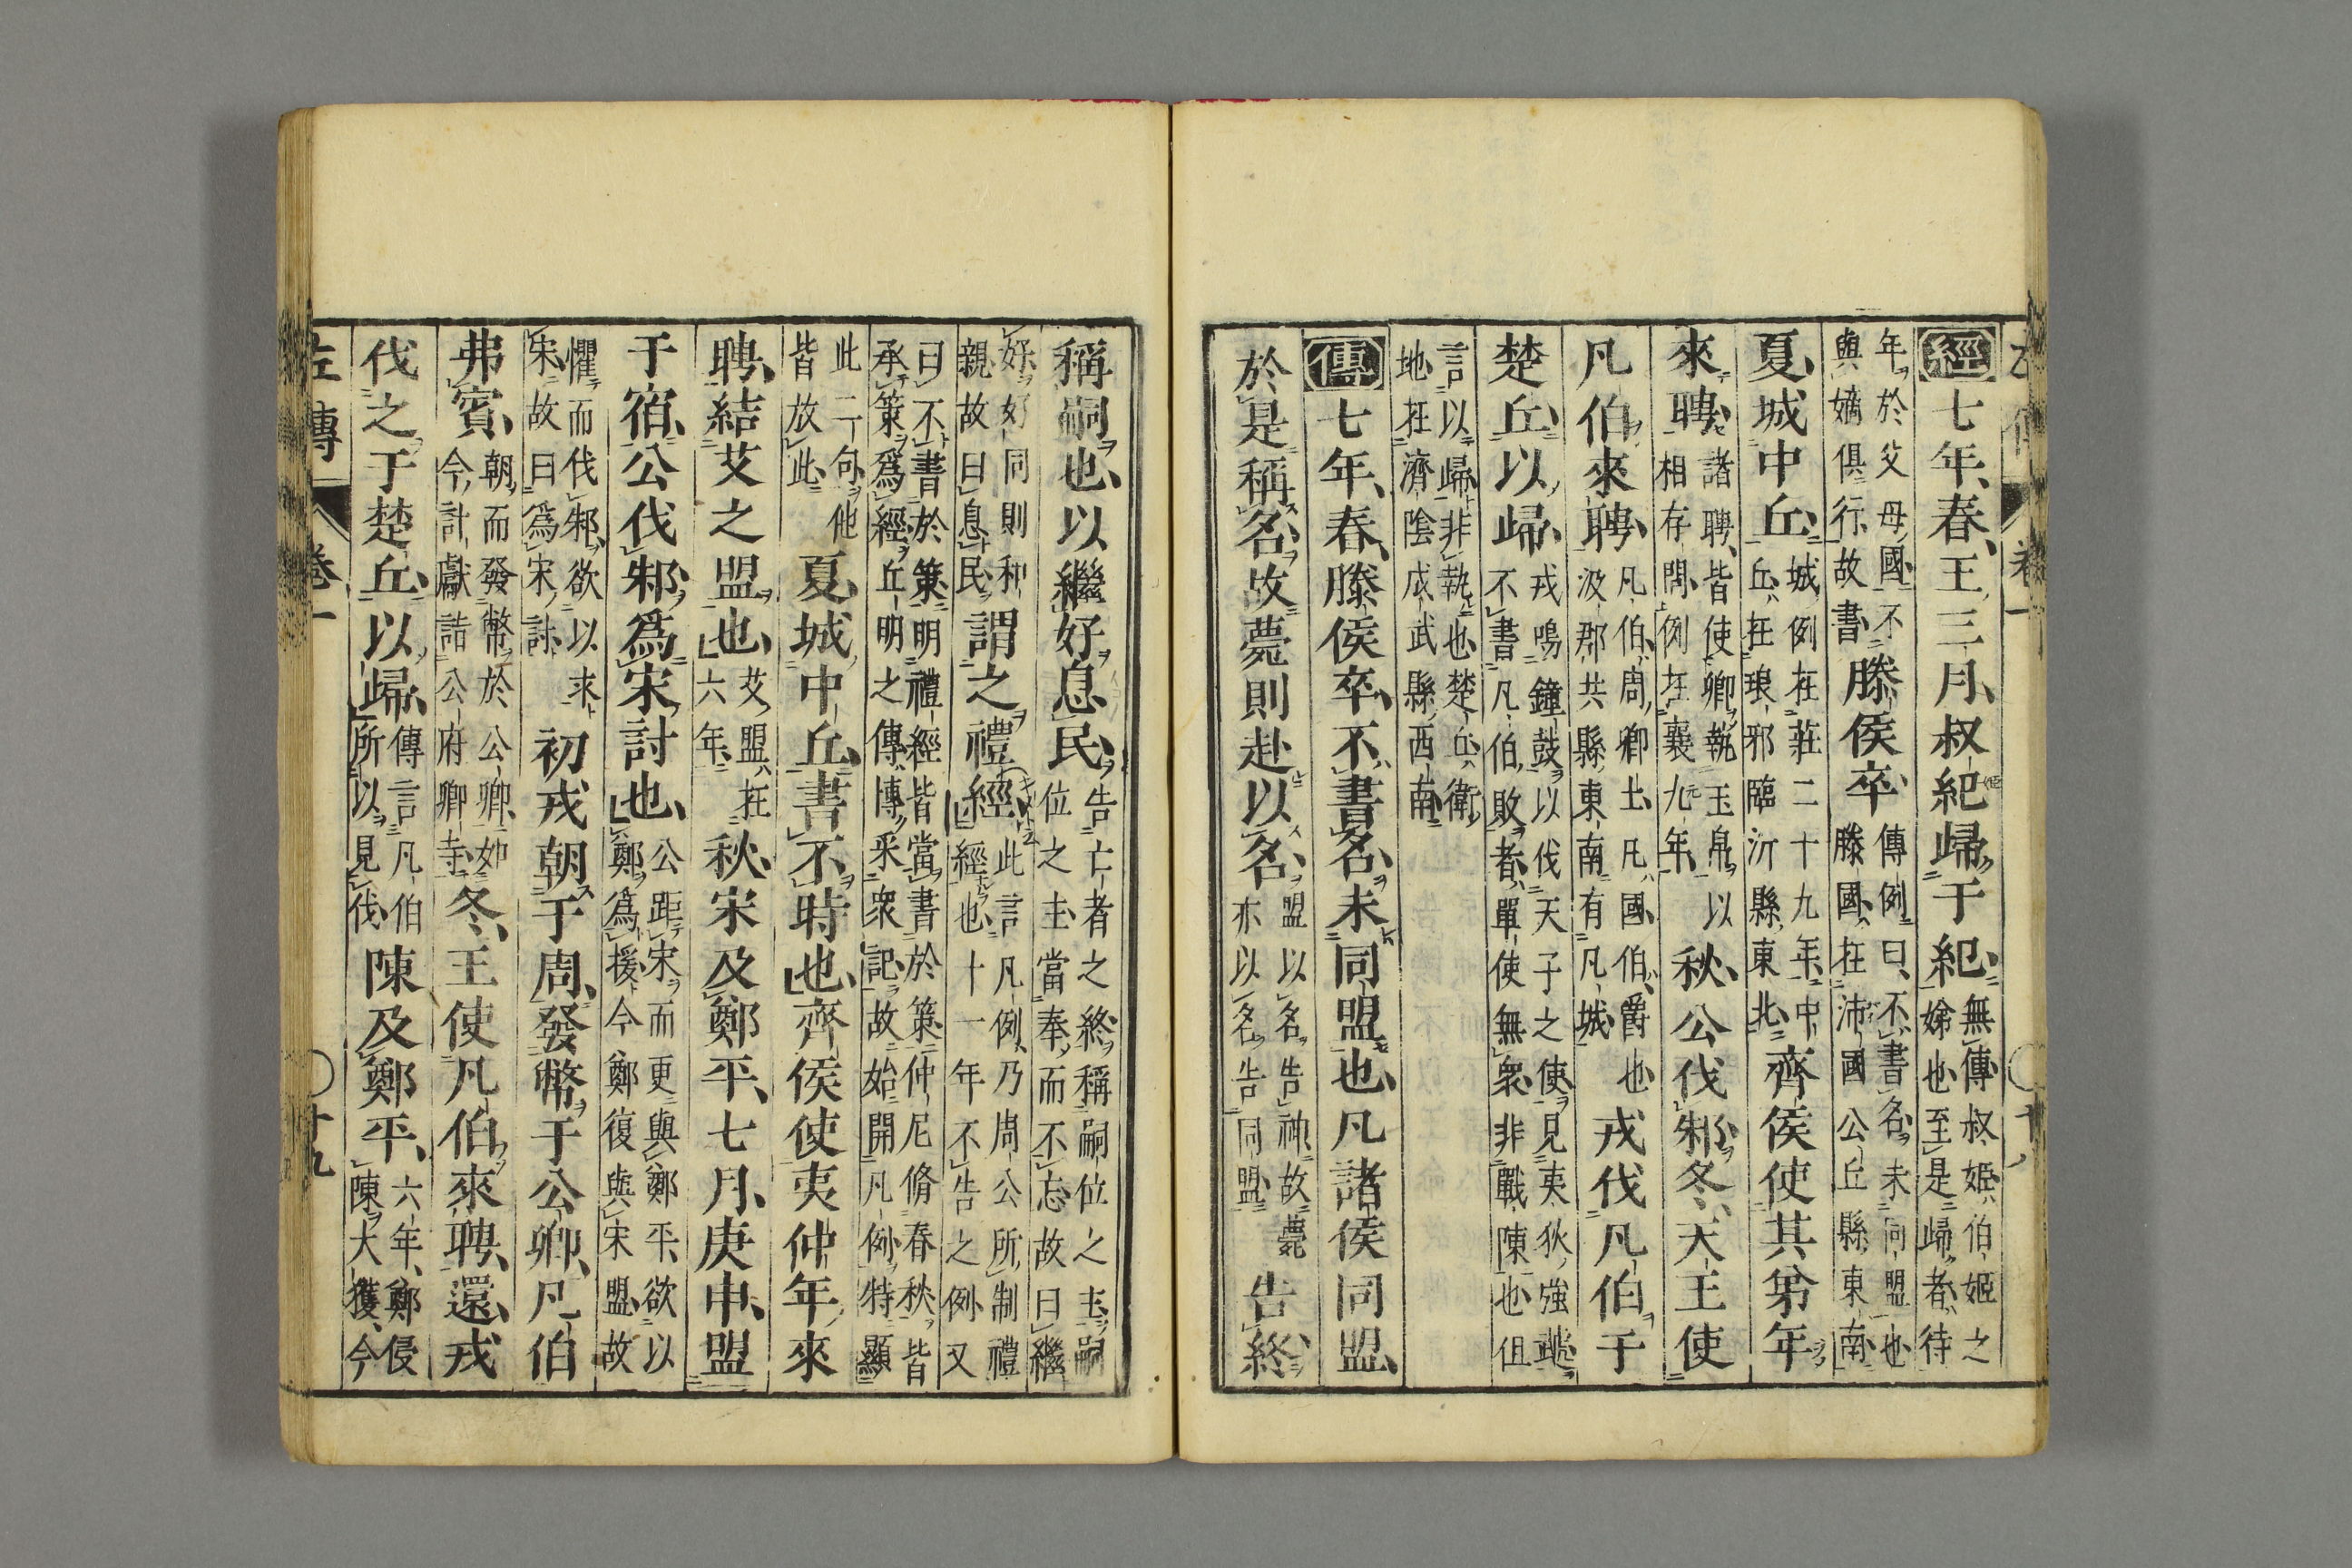 經七年、春、王三月、叔紀歸于紀、無傳叔姬、伯姬之
娣也至是歸者、待
年於父母國不
與嫡俱行、故書滕侯卒傳例曰、不書名、未同盟也
滕國、在沛國公丘縣、東南
夏、城中丘、城例在莊二十九年、中
丘、在琅邪臨沂縣、東北齊侯使其弟年
來聘、諸聘、皆使卿執玉帛、以
相存問、例在襄九年秋、公伐邾、冬、天王使
凡伯來聘、凡伯、周卿士凡、國、伯、爵也
汲郡共縣、東南有凡城戎伐凡伯于
楚丘、以歸、戎鳴鐘鼓以伐天子之使、見夷狄強虣
不書凡伯敗者、單使無衆非戰陳也但
言以歸非執也楚丘、衛
地在濟陰成武縣、西南
傳七年、春、滕侯卒、不書名、未同盟也、凡諸侯同盟、
於是稱名、故薨則赴以名、盟以名告神故薨
亦以名告同盟告終
稱嗣也、以繼好息民、告亡者之終稱嗣位之主嗣
位之主當奉而不忘故曰繼
好好同則和
親故曰息民謂之禮經、此言凡例乃周公所制禮
經也十一年不告之例又
曰不書於策明禮經皆當書於策仲尼脩春秋皆
承策爲經丘明之傳博采衆記故始開凡例特顯
此二句他
皆放此夏、城中丘、書不時也、齊侯使夷仲年來
聘、結艾之盟也、艾盟、在
六年秋、宋及鄭平、七月、庚申、盟
于宿、公伐邾、爲宋討也、公距宋而更與鄭平、欲以
鄭爲援今鄭復與宋盟故
懼而伐邾、欲以求
宋故曰爲宋討初戎朝于周、發幣于公卿、凡伯
弗賓、朝而發幣於公卿、如
今計獻詣公府卿寺冬、王使凡伯來聘、還、戎
伐之于楚丘、以歸、傳言凡伯
所以見伐陳及鄭平、六年、鄭侵
陳大獲、今
左傳 卷一 十九